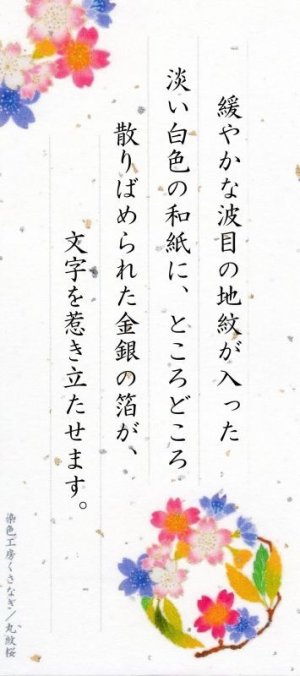 緩やかな波目の地紋が入った
淡い白色の和紙に、ところどころ
散りばめられた金銀の箔が、
文字を惹き立たせます。
染色工房くさなぎ／丸紋桜